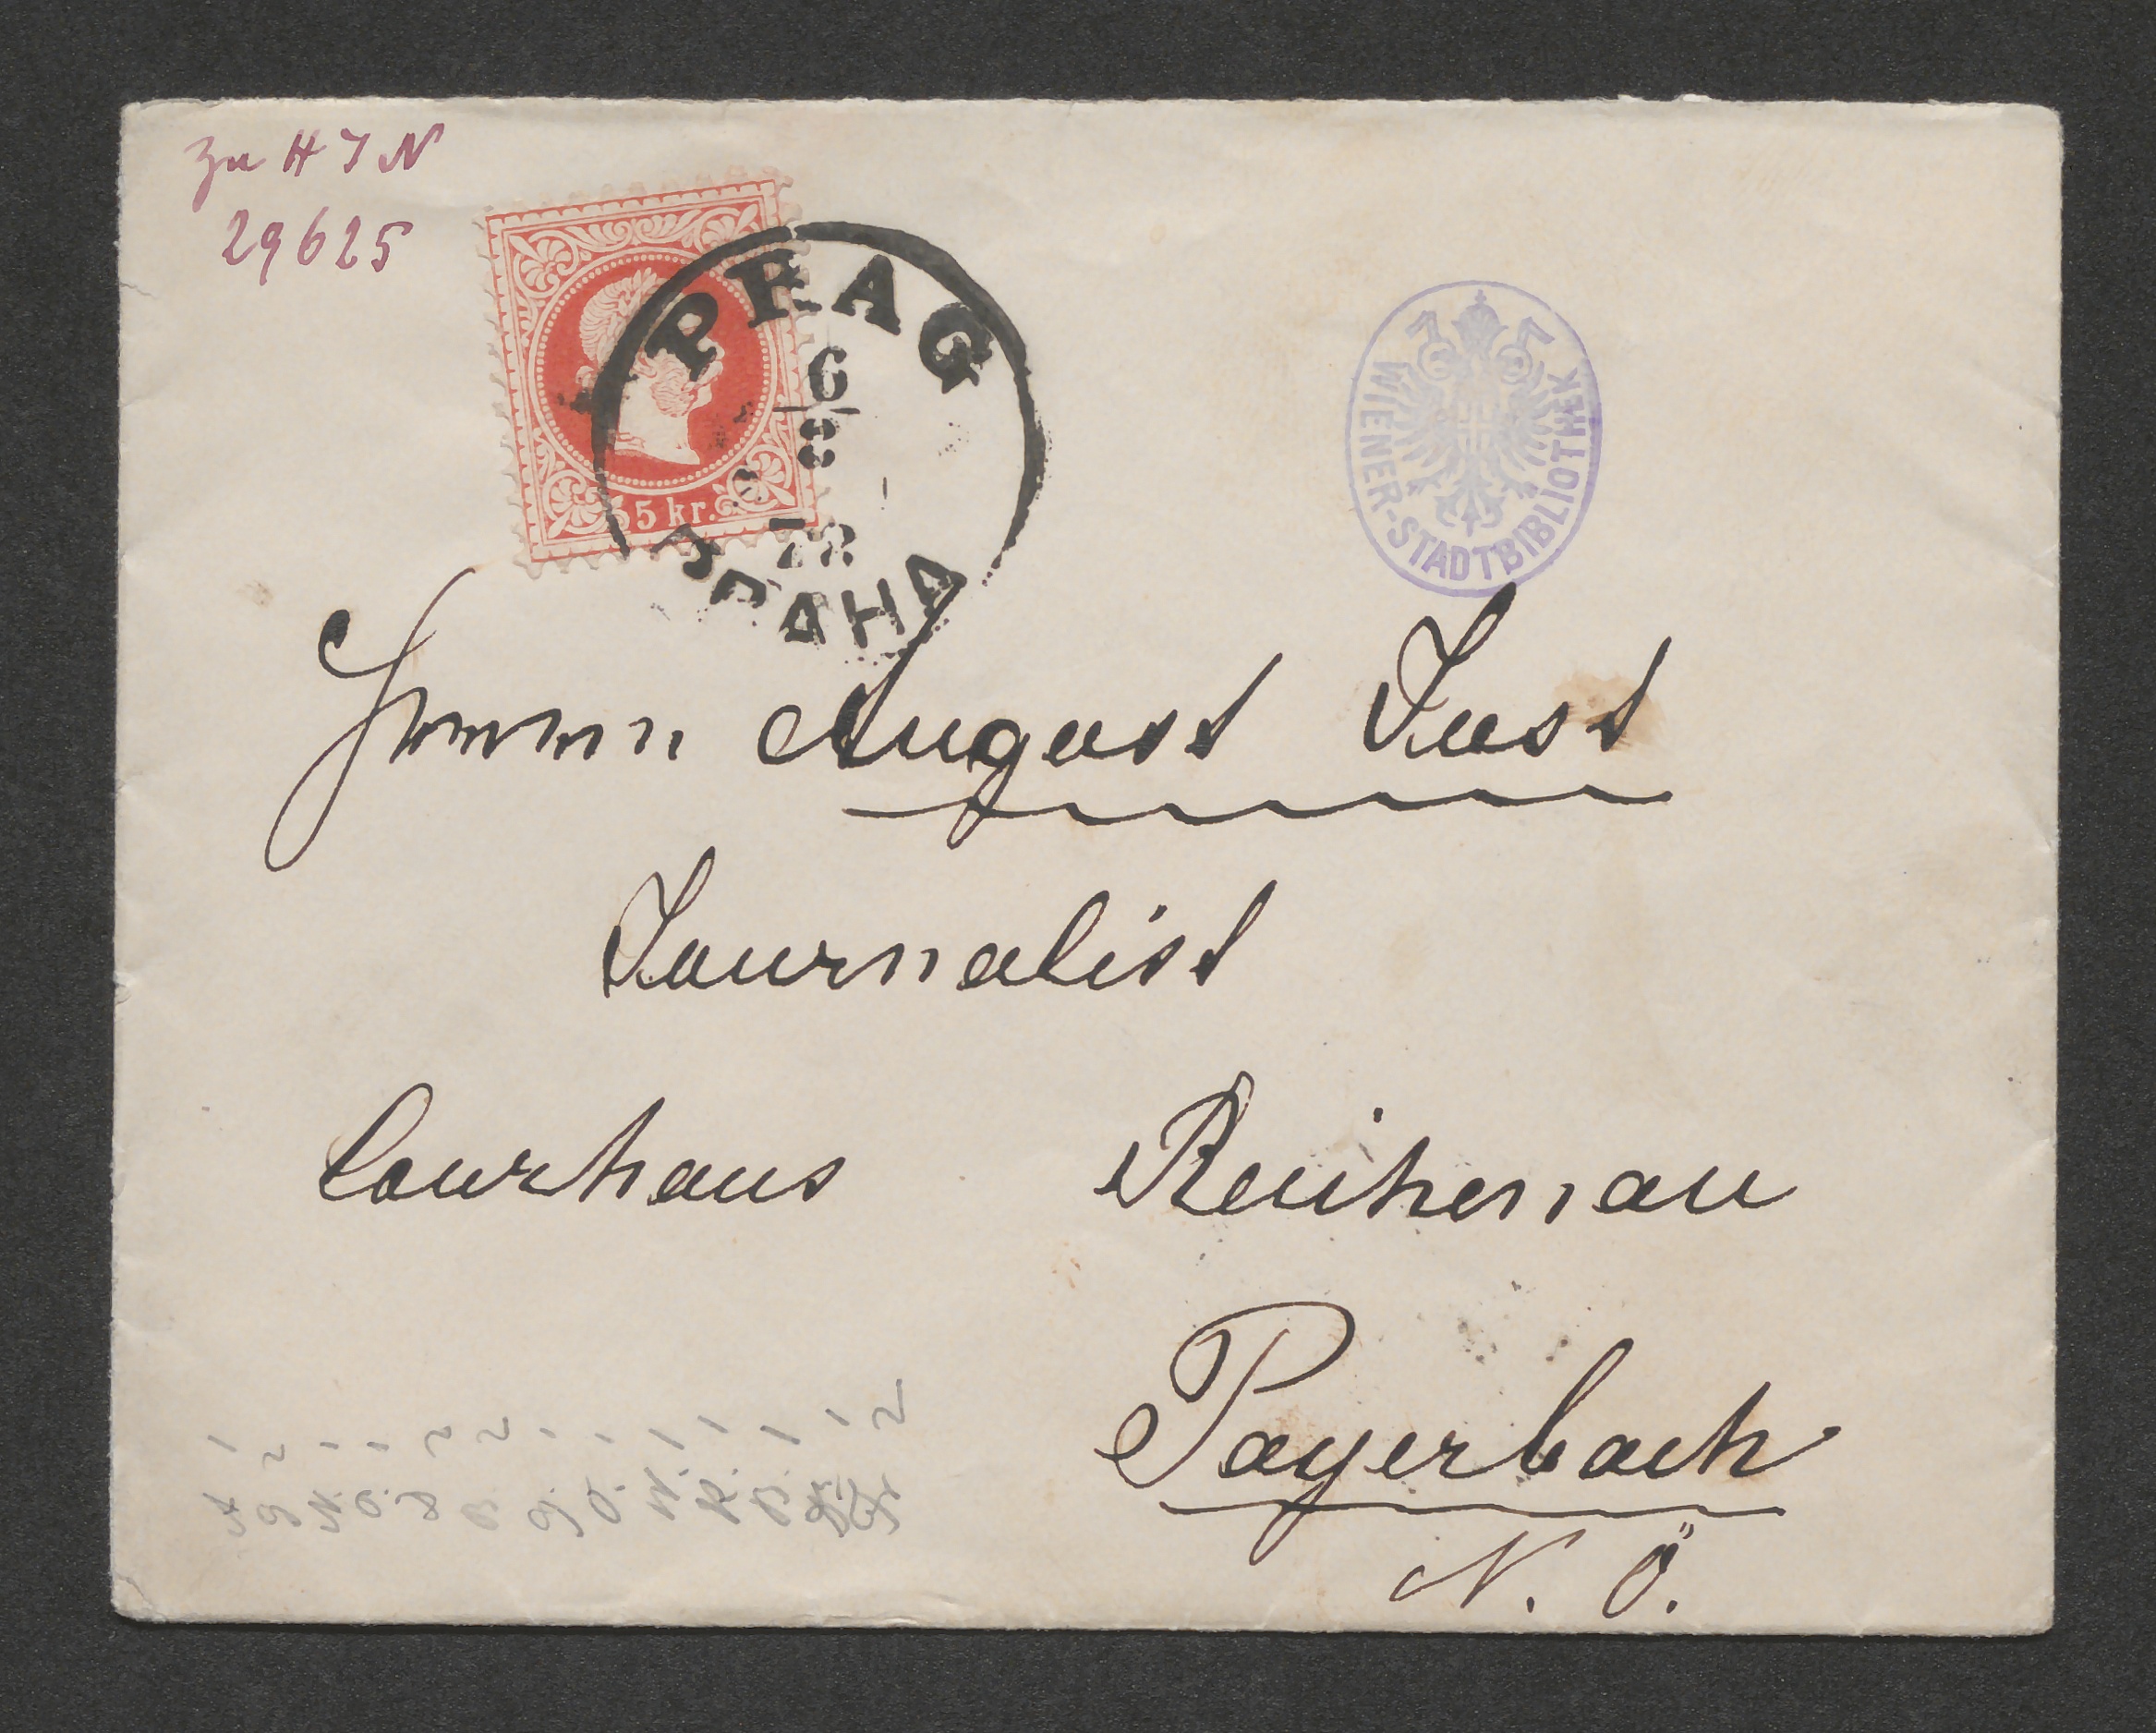 Zu H I N
29625
PRAG
6
8
72
PRAHA
5 kr.
WIENER-STADTBIBLIOTHEK
Herrn August Just
Journalist
Courhaus Reichenau
Payerbach
N. Ö.